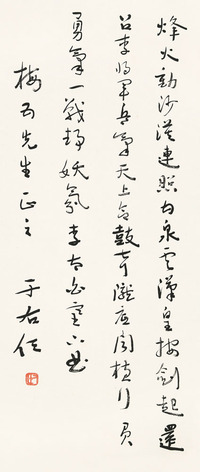 烽火動沙漠連照甘泉雲漢皇按劍起還
召李將軍兵氣天上合鼓聲隴底聞橫行負
勇氣一戰靜妖氛李太白塞下曲
梅先生正之 于右任